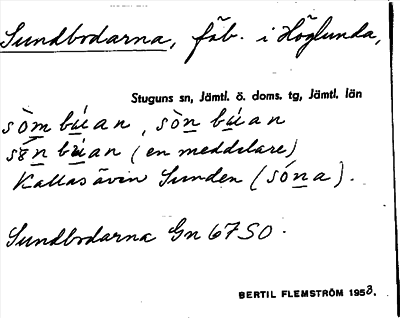 Sundbodarna, fäb. i Höglunda,
Stuguns sn, Jämtl. ö. doms. tg, Jämtl. län
sòm búan, sòn búan
sən bùan (en meddelare)
Kallas även Sunden (sóna).
Sundbodarna Gn 67 SO.
BERTIL FLEMSTRÖM 1953.